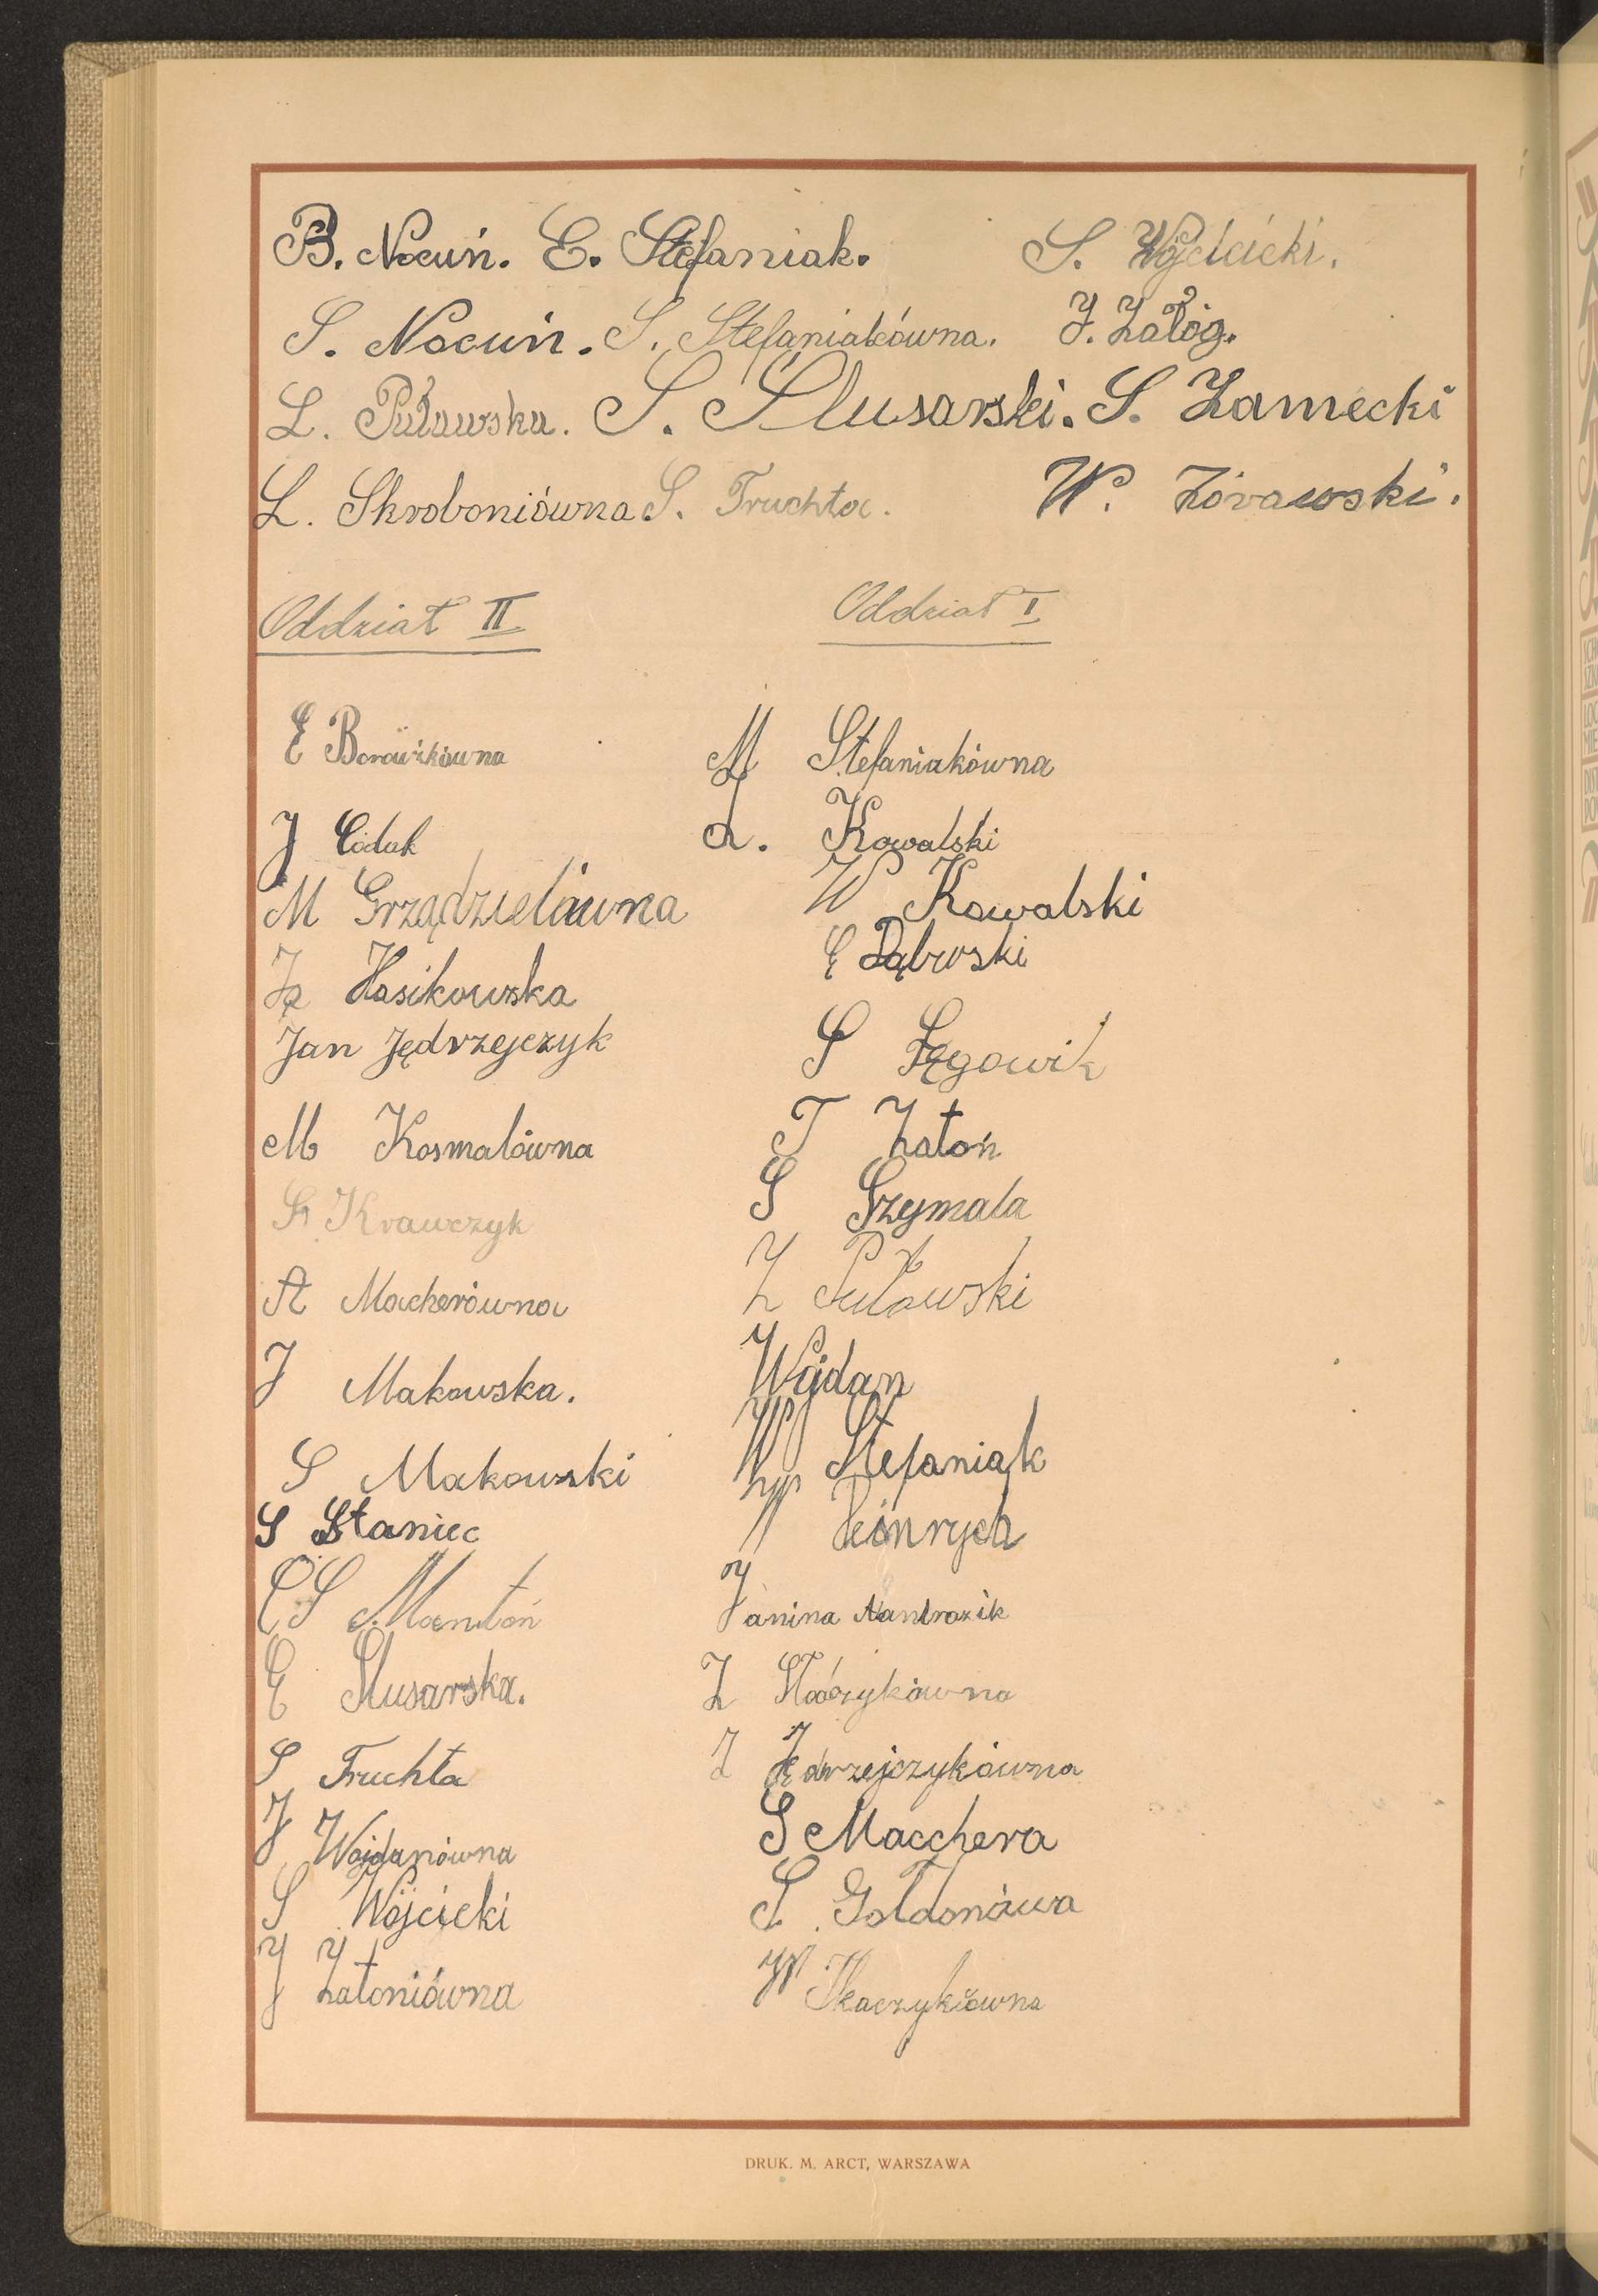 B. Nocuń. E. Stefaniak. S. Wójcicki.
S. Nocuń. S. Stefaniakówna. J. Załóg.
L. Puławska. S. Ślusarski. S. Zamecki
L. Skroboniówna S. Truchta. W. Żórawski.
Oddział II
E Borowikówna
J Codak
M Grządzielówna
Ja Hasikowska
Jan Jędrzejczyk
M Kosmalówna
St Krawczyk
A Macherówna
J Makowska.
S Makowski
S Staniec
S Mantoń
E Ślusarska.
S Truchta
J Wojdanówna
S Wójcicki
J Zatoniówna
Oddział I
M Stefaniakówna
L. Kowalski
W Kowalski
E Dąbrski
S Łęgowik
T Zatoń
S Szymala
Z Puławski
Wojdan
W Stefaniak
W Heinrych
Janina
Z
Z Jędrzejczykówna
S Macchera
S Gołdonówa
W Tkaczykówna
DRUK. M. ARCT, WARSZAWA